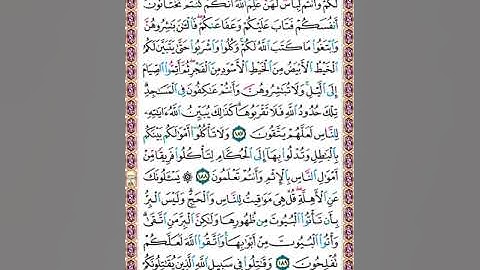 لَكُمْ وَأَنتُمْ لِبَاسٌ لَّهُنَّ عَلِمَ ٱللَّهُ أَنَّكُمْ كُنتُمْ تَخْتَانُونَ
أَنفُسَكُمْ فَتَابَ عَلَيْكُمْ وَعَفَا عَنكُمْ فَٱلْـَٰٔنَ بَٰشِرُوهُنَّ
وَٱبْتَغُوا۟ مَا كَتَبَ ٱللَّهُ لَكُمْ وَكُلُوا۟ وَٱشْرَبُوا۟ حَتَّىٰ يَتَبَيَّنَ لَكُمُ
ٱلْخَيْطُ ٱلْأَبْيَضُ مِنَ ٱلْخَيْطِ ٱلْأَسْوَدِ مِنَ ٱلْفَجْرِ ثُمَّ أَتِمُّوا۟ ٱلصِّيَامَ
إِلَى ٱلَّيْلِ وَلَا تُبَٰشِرُوهُنَّ وَأَنتُمْ عَٰكِفُونَ فِى ٱلْمَسَٰجِدِ
تِلْكَ حُدُودُ ٱللَّهِ فَلَا تَقْرَبُوهَا كَذَٰلِكَ يُبَيِّنُ ٱللَّهُ ءَايَٰتِهِۦ
لِلنَّاسِ لَعَلَّهُمْ يَتَّقُونَ ١٨٧ وَلَا تَأْكُلُوٓا۟ أَمْوَٰلَكُم بَيْنَكُم
بِٱلْبَٰطِلِ وَتُدْلُوا۟ بِهَآ إِلَى ٱلْحُكَّامِ لِتَأْكُلُوا۟ فَرِيقًا مِّنْ
أَمْوَٰلِ ٱلنَّاسِ بِٱلْإِثْمِ وَأَنتُمْ تَعْلَمُونَ ١٨٨ ۞ يَسْـَٔلُونَكَ
عَنِ ٱلْأَهِلَّةِ قُلْ هِىَ مَوَٰقِيتُ لِلنَّاسِ وَٱلْحَجِّ وَلَيْسَ ٱلْبِرُّ
بِأَن تَأْتُوا۟ ٱلْبُيُوتَ مِن ظُهُورِهَا وَلَٰكِنَّ ٱلْبِرَّ مَنِ ٱتَّقَىٰ
وَأْتُوا۟ ٱلْبُيُوتَ مِنْ أَبْوَٰبِهَا وَٱتَّقُوا۟ ٱللَّهَ لَعَلَّكُمْ
تُفْلِحُونَ ١٨٩ وَقَٰتِلُوا۟ فِى سَبِيلِ ٱللَّهِ ٱلَّذِينَ يُقَٰتِلُونَكُمْ